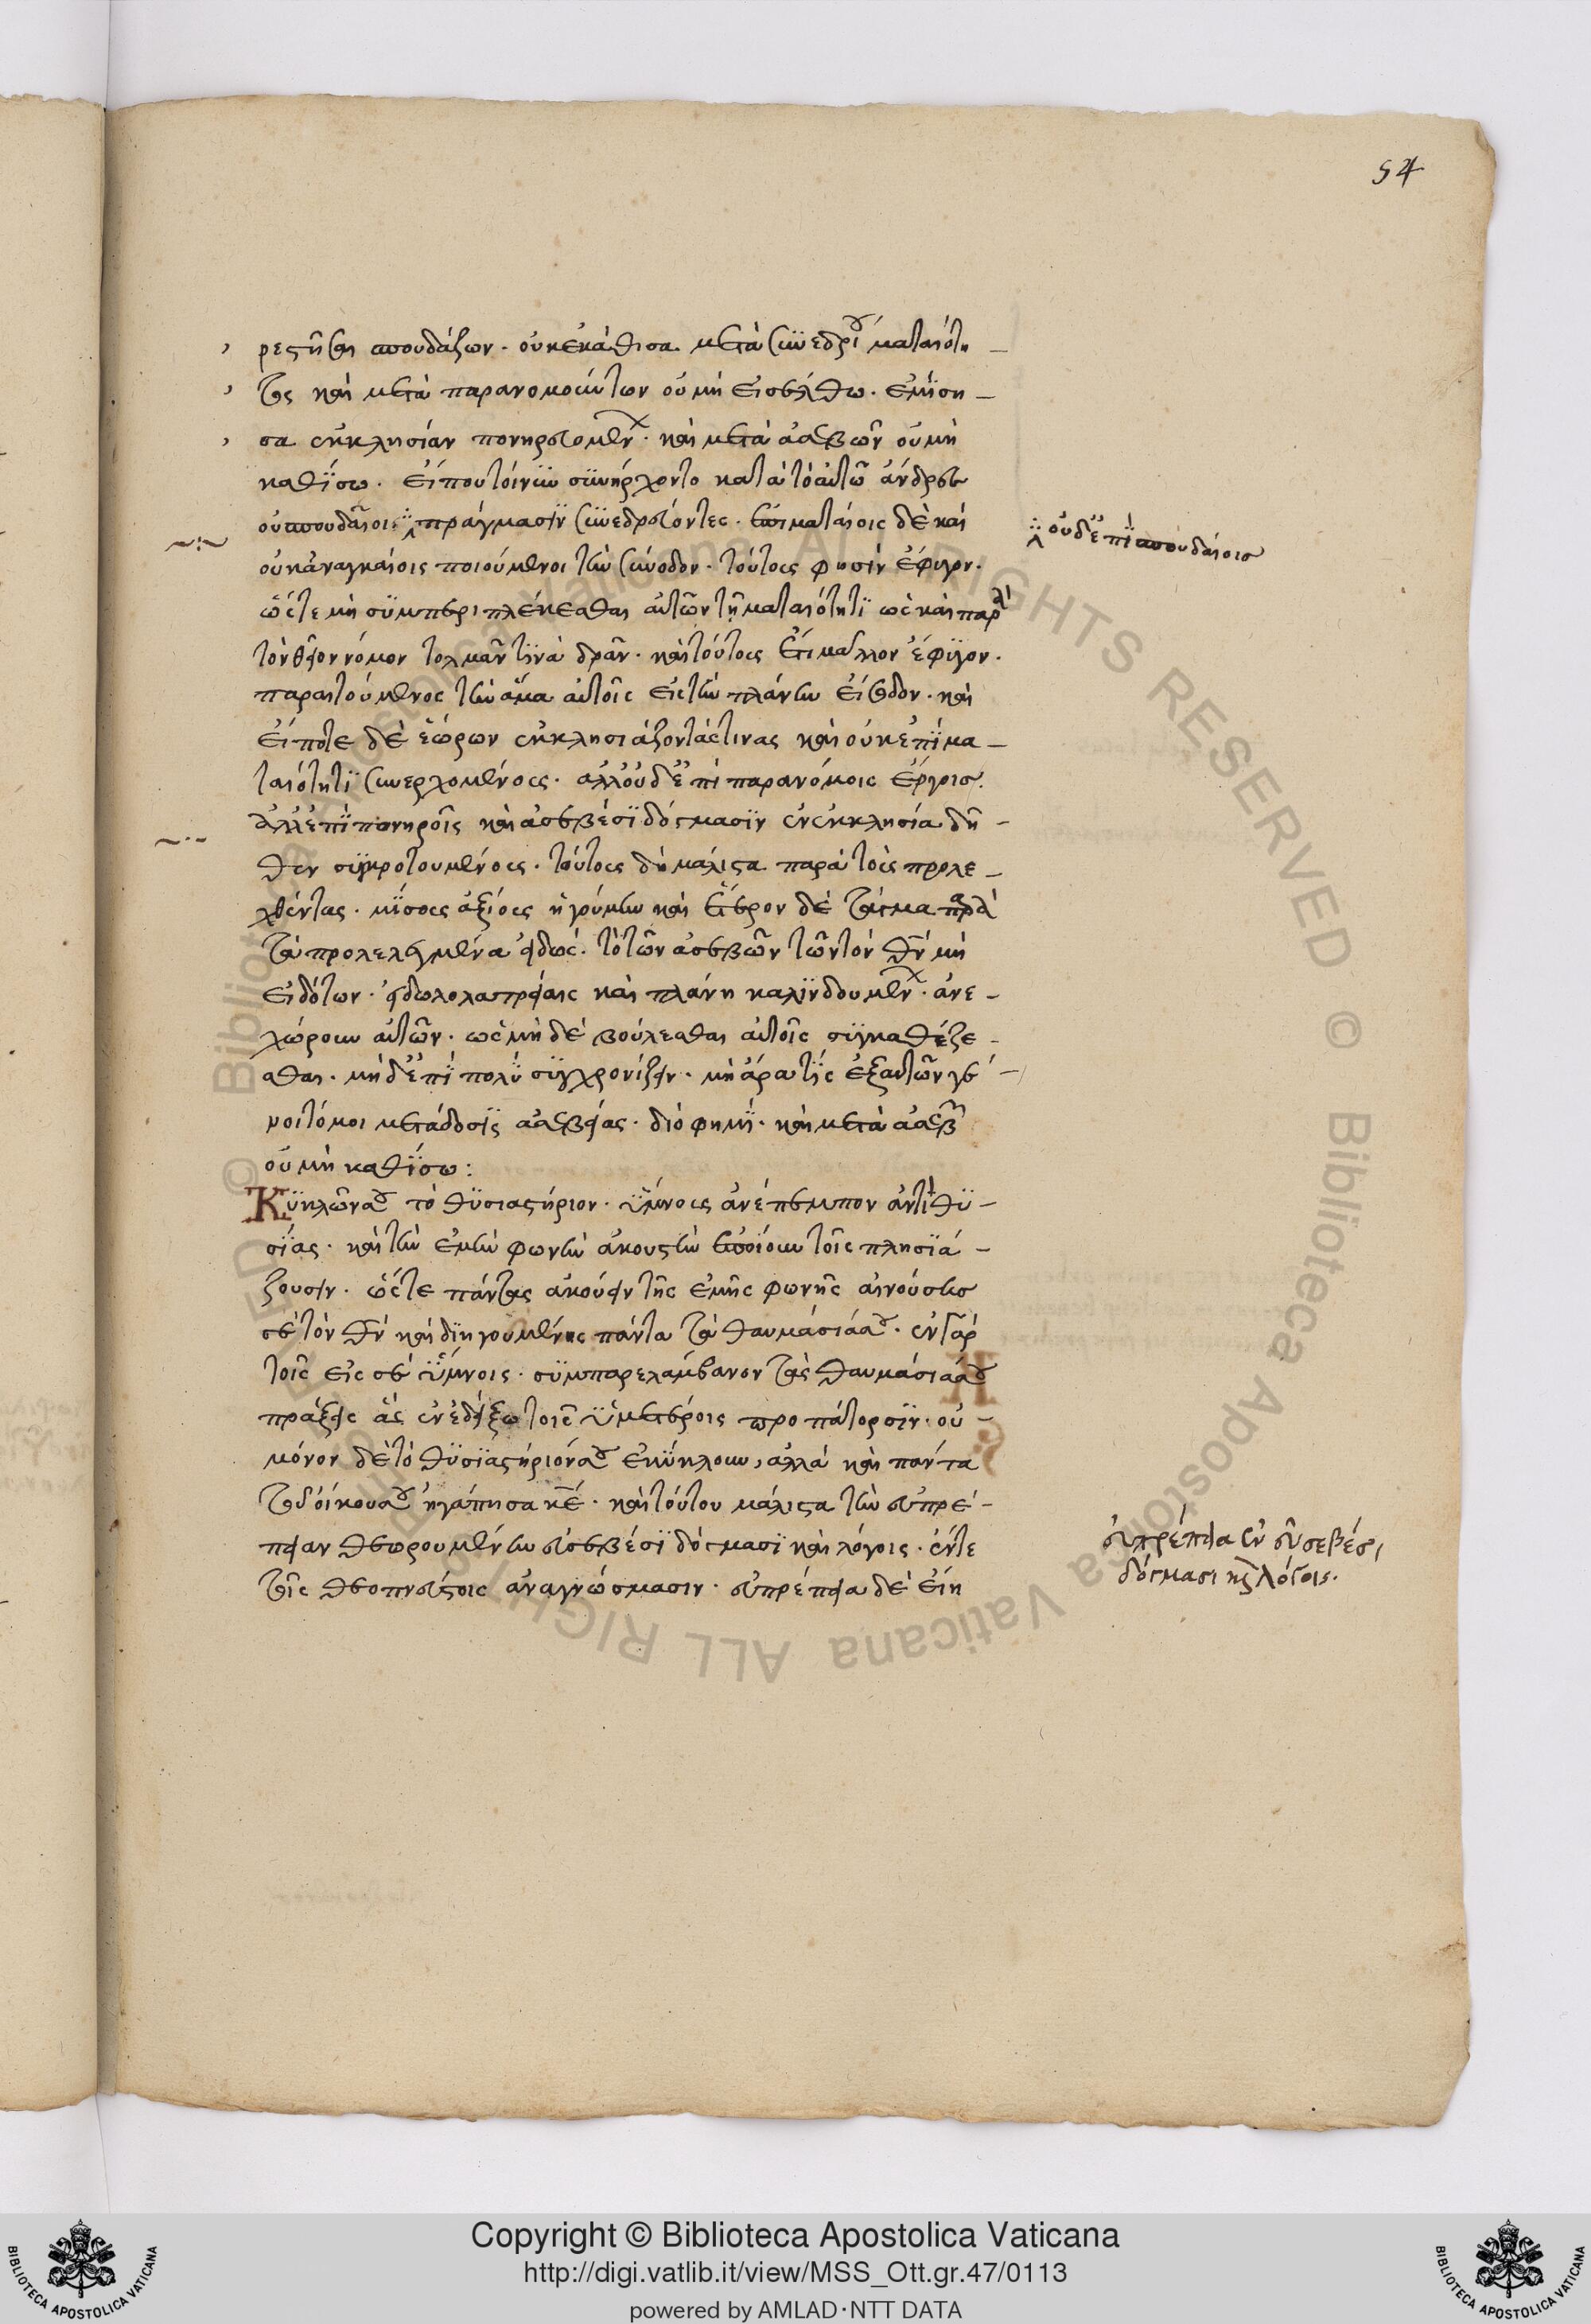 54
ρεστῆσαι σπουδάζων. οὐκ ἐκάθισα μετὰ συνεδρίου ματαιότη–
τος καὶ μετὰ παρανομούντων οὐ μὴ εἰσέλθω. ἐμίση–
σα ἐκκλησίαν πονηρευομένων. καὶ μετὰ ἀσεβῶν οὐ μὴ
καθΐσω. εἴπου τοίνυν συνήρχοντο κατὰ τὸ αὐτῶ ἄνδρες
οὐ σπουδαίοις πράγμασϊν συνεδρεύοντες. ἐπι ματαίοις δὲ καὶ
οὐδ' ἐπῒ σπουδαίοισ
οὐκ ἀναγκαίοις ποιούμενοι τὴν σύνοδον. τούτους φησὶν ἔφυγον.
ὥστε μὴ συμπεριπλέκεσθαι αὐτῶν τῆ ματαιότητϊ ὡς καὶ παρὰ
τὸν θεῖον νόμον τολμᾶν τϊνὰ δρᾶν. καὶ τούτους ἔτι μᾶλλον ἔφϋγον.
παραιτούμενος τὴν ἅμα αὐτοῖς εἰς τὴν πλάνην εἴσοδον. καὶ
εἴποτε δὲ ἑώρων ἐκκλησιάζοντάς τινας καὶ οὐκ ἐπῒ μα–
ταιότητϊ συνερχομένους. ἀλλ' οὐδ' ἐπὶ παρανόμοις ἔργοισ.
ἀλλ' ἐπῒ πονηροῖς καὶ ἀσεβέσϊ δόγμασϊν ἐν ἐκκλησία δῆ–
θεν συγκροτουμένους. τούτους δὴ μάλιστα παρὰ τοὺς προλε–
χθέντας. μίσους ἀξίους ἡγούμην καὶ ἕτερον δὲ τάγμα παρὰ
τὰ προλελεγμένα εἰδώς. τὸ τῶν ἀσεβῶν τῶν τὸν θν μὴ
εἰδότων. εἰδωλολατρείαις καὶ πλάνη καλϊνδουμένων. ἀνε–
χώρουν αὐτῶν. ὡς μὴ δὲ βούλεσθαι αὐτοῖς συγκαθέζε–
σθαι. μὴ δ' ἐπῒ πολὺ συγχρονίζειν. μὴ ἄρα τὶς ἐξ αὐτῶν γέ–
νοιτό μοι μετάδοσϊς ἀσεβείας. διό φημῒ. καὶ μετὰ ἀσεβῶν
οὐ μὴ καθΐσω:
Κυκλῶν σου τὸ θϋσιαστήριον. ὕμνους ἀνέπεμπον ἀντὶ θϋ–
σΐας. καὶ τὴν ἐμὴν φωνὴν ἀκουστὴν ἐποίουν τοῖς πλησϊά–
ζουσιν. ὥστε πάντας ἀκούειν τῆς ἐμῆς φωνῆς αἰνούσησ
σὲ τὸν θν καὶ διηγουμένης πάντα τὰ θαυμάσιά σου. ἐν γὰρ
τοῖς εἰς σὲ ὕμνοις. συμπαρελάμβανον τὰς θαυμάσιάς σου
πράξεις ἃς ἐνεδείξω τοῖς ἡμετέροις προπάτορσϊν. οὐ–
μόνον δὲ τὸ θϋσϊαστήριόν σου ἐκύκλουν, ἀλλὰ καὶ πάντα
τοῦ οἴκου σου ἠγάπησα κε. καὶ τούτου μάλιστα τὴν εὐπρέ–
πειαν θεωρουμένην εὐσεβέσϊ δόγμασϊ καὶ λόγοις. ἔν τε
εὐπρέπεια ἐν εὐσεβέσι
δόγμασι καὶ λόγοις.
τοῖς θεοπνεύστοις ἀναγνώσμασιν. εὐπρέπεια δὲ εἴη
Copyright © Biblioteca Apostolica Vaticana
http://digi.vatlib.it/view/MSS_Ott.gr.47/0113
powered by AMLAD·NTT DATA